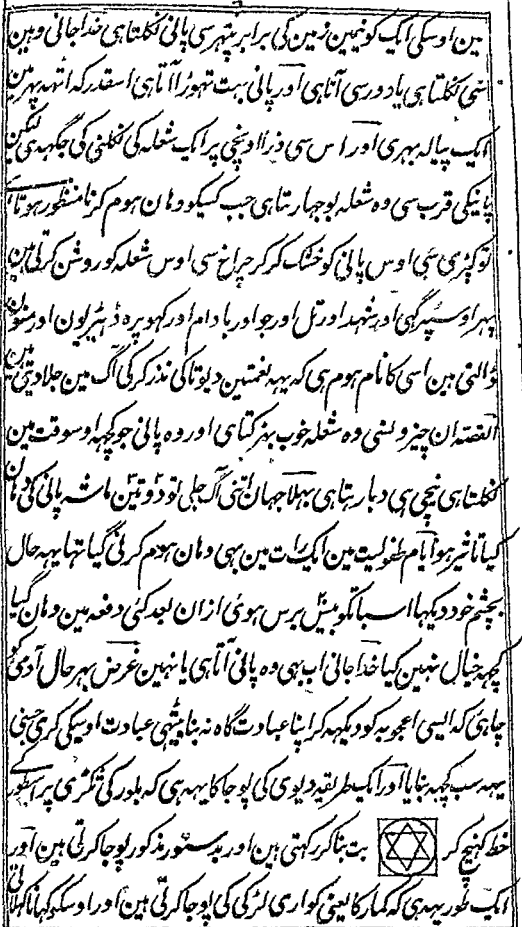 مین اوسکی ایک کونیمین زمین کی برابر پتہر سی پانی نکلتا ہی خدا جانی وہین
سی نکلتا ہی یا دور سی آتا ہی اور پانی بہت تہوڑا آتا ہی اسقدر کہ اٹہہ پہر مین
ایک پیالہ بہری اور اس سی ذرا اونچی پر ایک شعلہ کی نکلنی کی جگہہ ہی لیکن
پانیکی قرب سی وہ شعلہ بوجہا رہتا ہی جب کسیکو وہان ہوم کرنا منظور ہوتا ہے
تو کپڑی سی اوس پانی کو خشک کر کر چراغ سی اوس شعلہ کو روشن کرتی ہین
پہر اوسپر گہی اور شہد اور تل اور جو اور بادام اور کہوپرہ ڈہیرلون اور منون
ڈالتی ہین اسی کا نام ہوم ہی کہ یہہ نعمتین دیوتا کی نذر کر کی آگ مین جلا دیتی ہین
القصہ ان چیزونسی وہ شعلہ خوب بہڑکتا ہی اور وہ پانی جو کچہہ اوسوقت مین
نکلتا ہی نیچی ہی دبا رہتا ہی بہلا جہان اتنی آگ جلی تو دو تین ماشہ پانی کی وہان
کیا تاثیر ہو ایام طفولیت مین ایک رات مین بہی وہان ہوم کرنی گیا تہا یہہ حال
بچشم خود دیکہا اسبا تکو بیس برس ہوئی ازان بعد کئی دفعہ مین وہان گیا
کچہہ خیال نہین کیا خدا جانی اب بہی وہ پانی آتا ہی یا نہین غرض بہر حال آدمی کو
چاہئی کہ ایسی اعجوبہ کو دیکہہ کر اپنا عبادت گاہ نہ بنا بیٹہی عبادت اوسکی کری جسنی
یہہ سب کچہہ بنایا اور ایک طریقہ دیوی کی پوجا کا یہہ ہی کہ بلور کی ٹکڑی پر اسطور کے
خط کہنیچ کر بت بنا کر رکہتی ہین اور بدستور مذکور پوجا کرتی ہین اور
ایک طور یہہ ہی کہ کمارکا یعنی کواری لڑکی کی پوجا کرتی ہین اور اوسکو کہانا کہلاتی